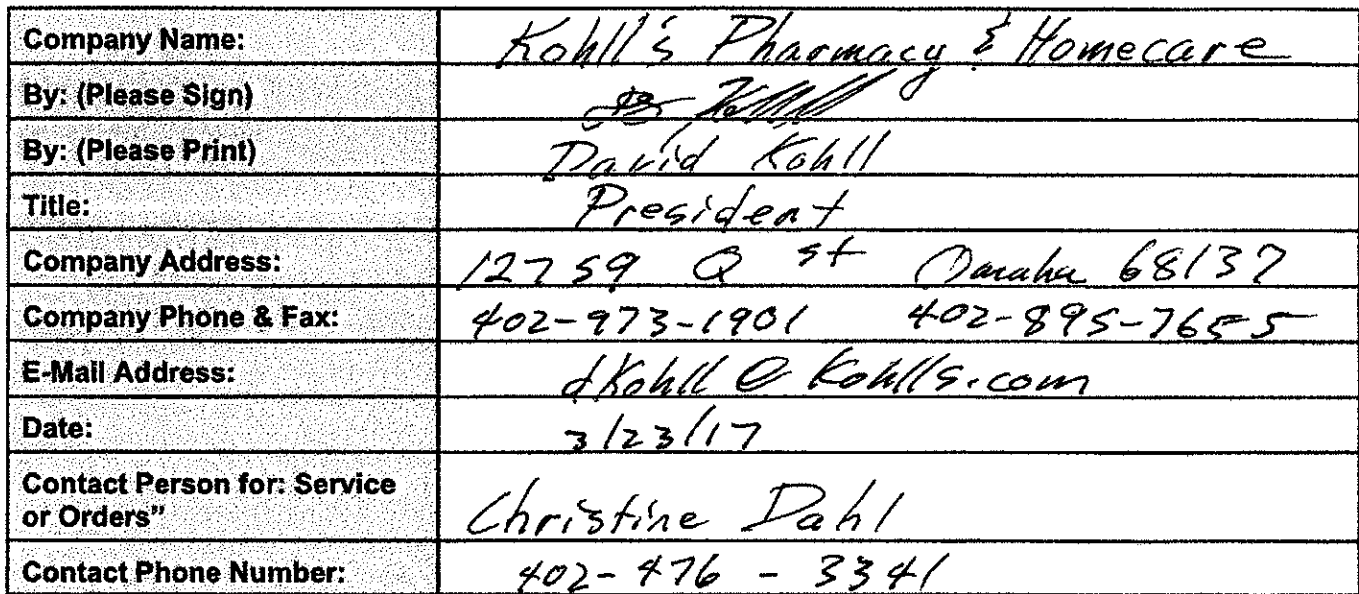 Company Name: Kohll's Pharmacy & Homecare
By: (Please Sign)
By: (Please Print) David Kohll
Title: President
Company Address: 12759 Q st Omaha 68137
Company Phone & Fax: 402-973-1901 402-895-7655
E-Mail Address: dKohll@Kohlls.com
Date: 3/23/17
Contact Person for: Service
or Orders" Christine Dahl
Contact Phone Number: 402-476-3341